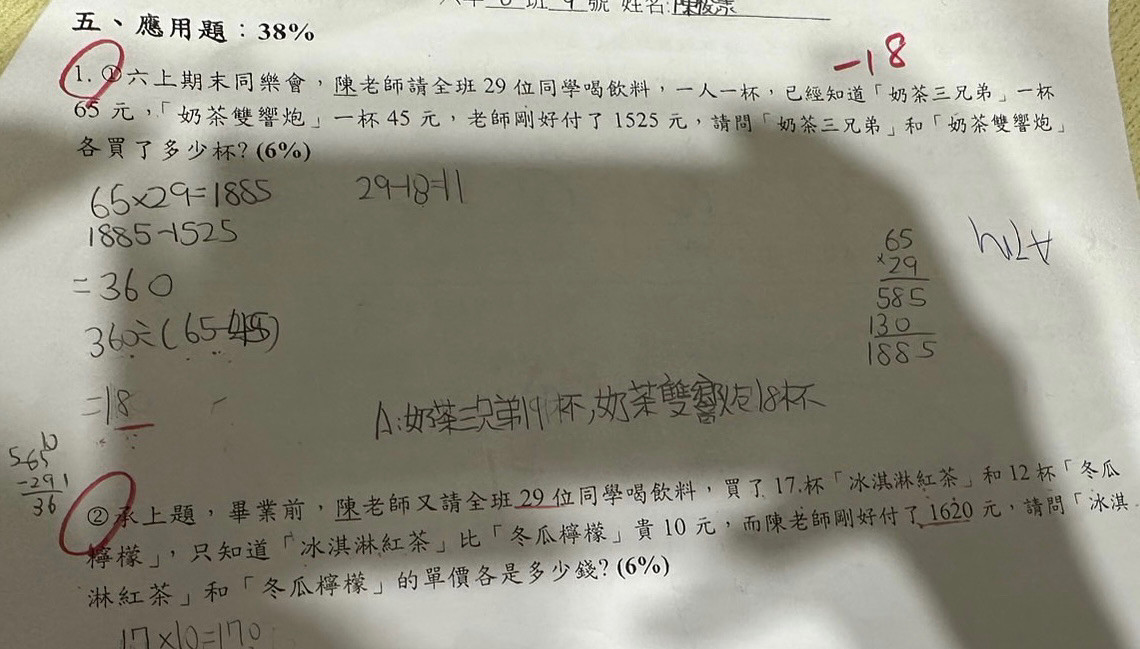 五、應用題：38%
-18
1. ①六上期末同樂會，陳老師請全班 29 位同學喝飲料，一人一杯，已經知道「奶茶三兄弟」一杯
65 元，「奶茶雙響炮」一杯 45 元，老師剛好付了 1525 元，請問「奶茶三兄弟」和「奶茶雙響炮」
各買了多少杯? (6%)
65×29=1885
29-18=11
1885-1525
=360
360÷(65-45)
=18
65
×29
585
130
1885
A:奶茶三兄弟11杯,奶茶雙響炮18杯
10
565
-291
36
②承上題，畢業前，陳老師又請全班 29 位同學喝飲料，買了 17 杯「冰淇淋紅茶」和 12 杯「冬瓜
檸檬」，只知道「冰淇淋紅茶」比「冬瓜檸檬」貴 10 元，而陳老師剛好付了 1620 元，請問「冰淇
淋紅茶」和「冬瓜檸檬」的單價各是多少錢? (6%)
17×10=170